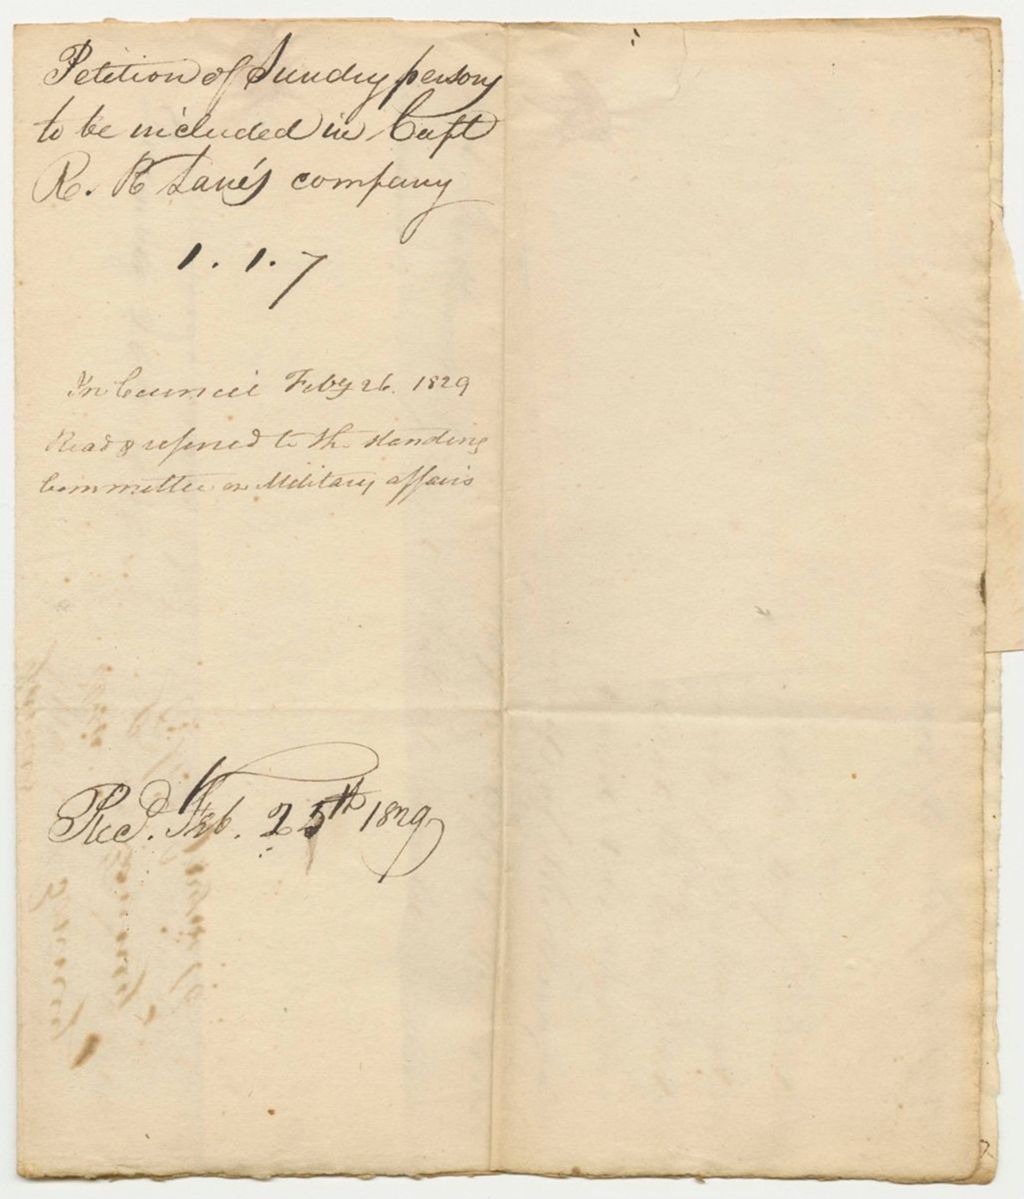 Petition of Sundry persons
to be included in Capt
R. R Lane's company
1. 1. 7
In Council Feby 26. 1829
Read & referred to the standing
Committee on Military affairs
Recd. Feb. 25th 1829